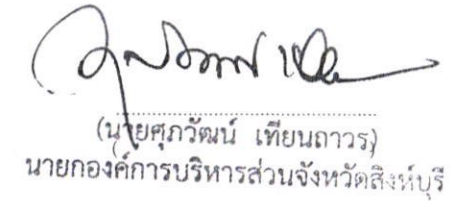 (นายศุภวัฒน์ เทียนถาวร)
นายกองค์การบริหารส่วนจังหวัดสิงห์บุรี